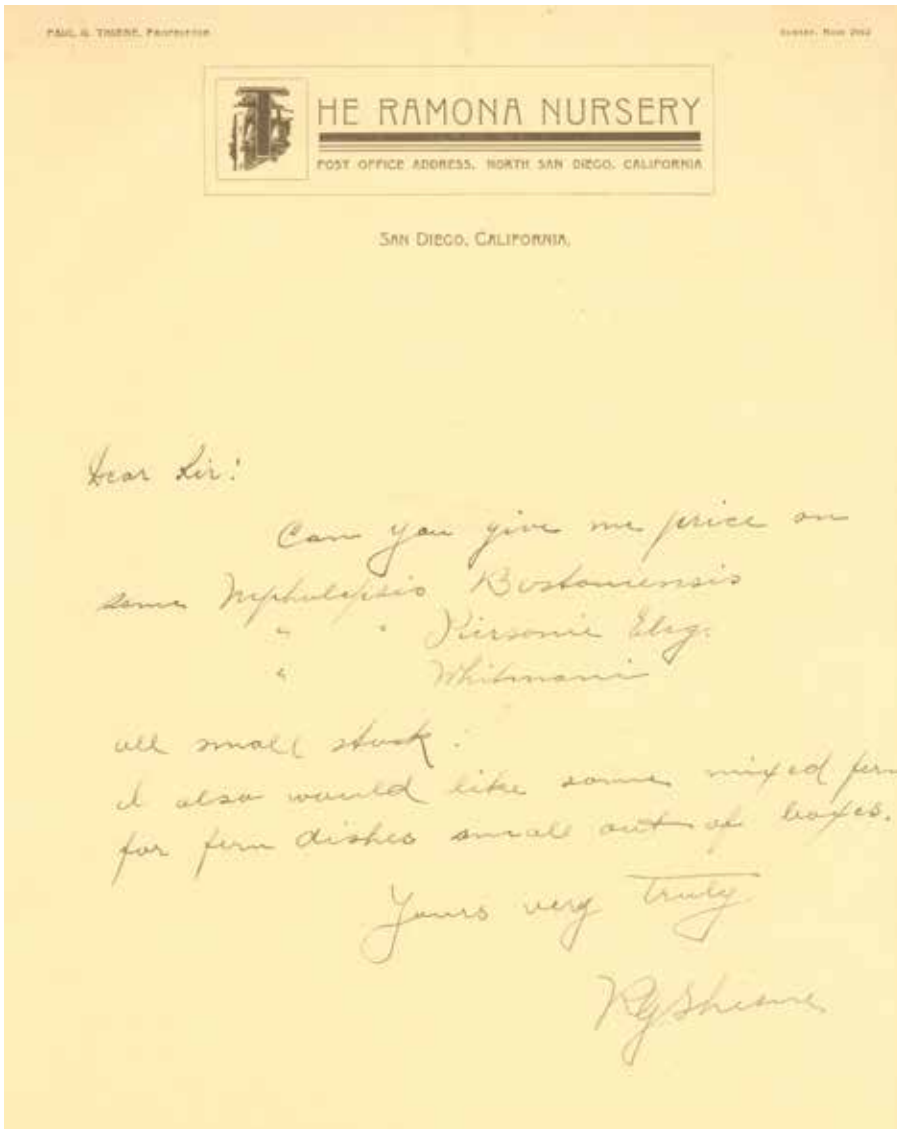 PAUL G. THIENE, PROPRIETOR
THE RAMONA NURSERY
POST OFFICE ADDRESS, NORTH SAN DIEGO, CALIFORNIA
SAN DIEGO, CALIFORNIA,
Dear Sir!
Can you give me price on
some Nephulepsis Bostoniensis
" " Piersonie Eleg.
" Whitmani
all small stock.
I also would like some mixed fern
for fern dishes small out of boxes.
Yours very truly
PGThiene